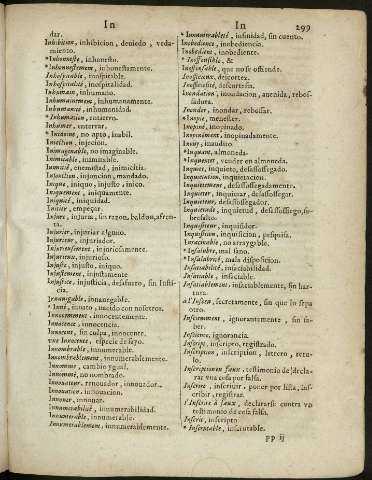 In
dar.
Inhibition, inhibicion, deniedo, veda-
miento.
*Inhonneste, inhonesto.
*Inhonnestement, inhonestamente.
Inhospitable, inospitable.
Inhospitalité, inospitalidad.
Inhumain, inhumano.
Inhumainement, inhumanamente.
Inhumanité, inhumanidad.
*Inhumation, entierro.
Inhumer, enterrar.
*Inidoine, no apto, inabil.
Iniection, injecion.
Inimaginable, no imaginable.
Inimitable, inimitable.
Inimitié, enemistad, inimicitia.
Inionction, injuncion, mandado.
Inique, iniquo, injusto, inico.
Iniquement, iniquamente.
Iniquité, iniquidad.
Initier, empeçar.
Iniure, injuria, sin razon, baldon, afren-
ta.
Iniurier, injuriar alguno.
Iniurieur, injuriador.
Iniurieusement, injuriosamente.
Iniurieux, injurioso.
Iniuste, injusto, iniquo.
Iniustement, injustamente
Iniustice, injusticia, desafuero, sin Justi-
cia.
Innauigable, innauegable.
*Inné, innato, nacido con nosotros.
Innocemment, innocentemente.
Innocence, innocencia.
Innocent, sin culpa, innocente.
vne Innocence, especie de sayo.
Innombrable, innumerable.
Innombrablement, innumerablemente.
Innomme, cambio ygual.
Innommé, no nombrado.
Innouateur, renouador, innouador.
Innouation, innouacion.
Innouer, innouar.
Innumerabilité, innumerabilidad.
Innumerable, innumerable.
Innumerablement, innumerablemente.
In
299
*Innumerableté, infinidad, sin cuento.
Inobedience, inobediencia.
Inobedient, inobediente.
*Inoffensible, &
Inoffensable, que no se offende.
Inofficieux, descortex.
Inofficiosité, descortesia.
Inondation, inoudacion, auenida, rebos-
sadura.
Inonder, inondar, rebossar.
*Inopie, menester.
Inopiné, inopinado.
Inopinément, inopinadamente.
Inouy, inaudito.
*Inquant, almoneda.
*Inquanter, vender en almoneda.
Inquiet, inquieto, desassossegado.
Inquietation, inquietacion.
Inquietement, desassossegadamente.
Inquieter, inquietar, desassossegar.
Inquieteur, desassossegador.
Inquietude, inquietud, desassossiego, so-
bresalto.
Inquisiteur, inquisidor.
Inquisition, inquisicion, pesquisa.
Inracinable, no arraygable.
*Insalubre, mal sano.
*Insalubrité, mala disposicion.
Insatiabilité, insaciabilidad.
Insatiable, insaciable.
Insatiablement, insaciablemente, sin har-
tura.
à l'Insceu, secretamente, sin que lo sepa
otro.
Insciemment, ignorantemente, sin sa-
ber.
Inscience, ignorancia.
Inscript, inscripto, registrado.
Inscription, inscripcion, letrero, retu-
lo.
Inscription en faux, testimonio de decla-
rar vna cosa por falsa.
Inscrire, inscriuir, poner por lista, ins-
cribir, registrar.
s'Inscrire à faux, declararse contra vn
testimonio de cosa falsa.
Inscrit, inscripto.
*Inscrutable, inscrutable.
PP ij